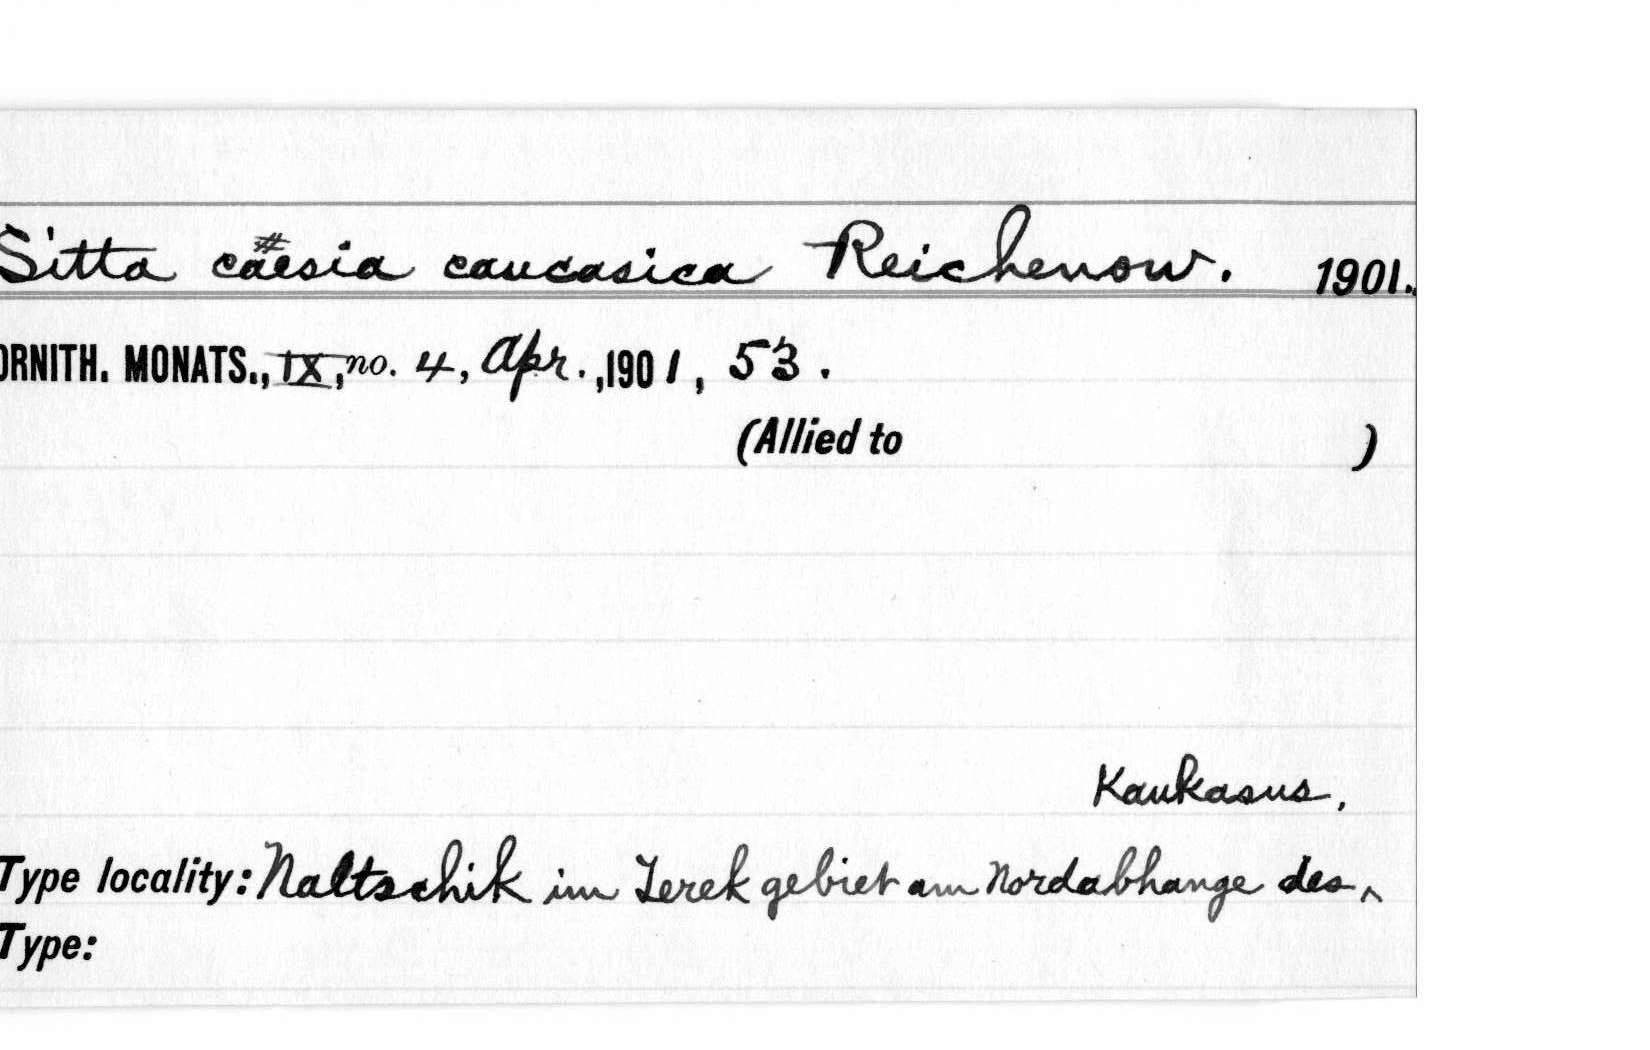 Sitta caesia caucasica Reichenow. 1901.
ORNITH. MONATS., IX, no. 4, Apr., 1901, 53.
(Allied to )
Kaukasus,
Type locality: Naltschik im Terek gebiet am Nordabhange des ^
Type: